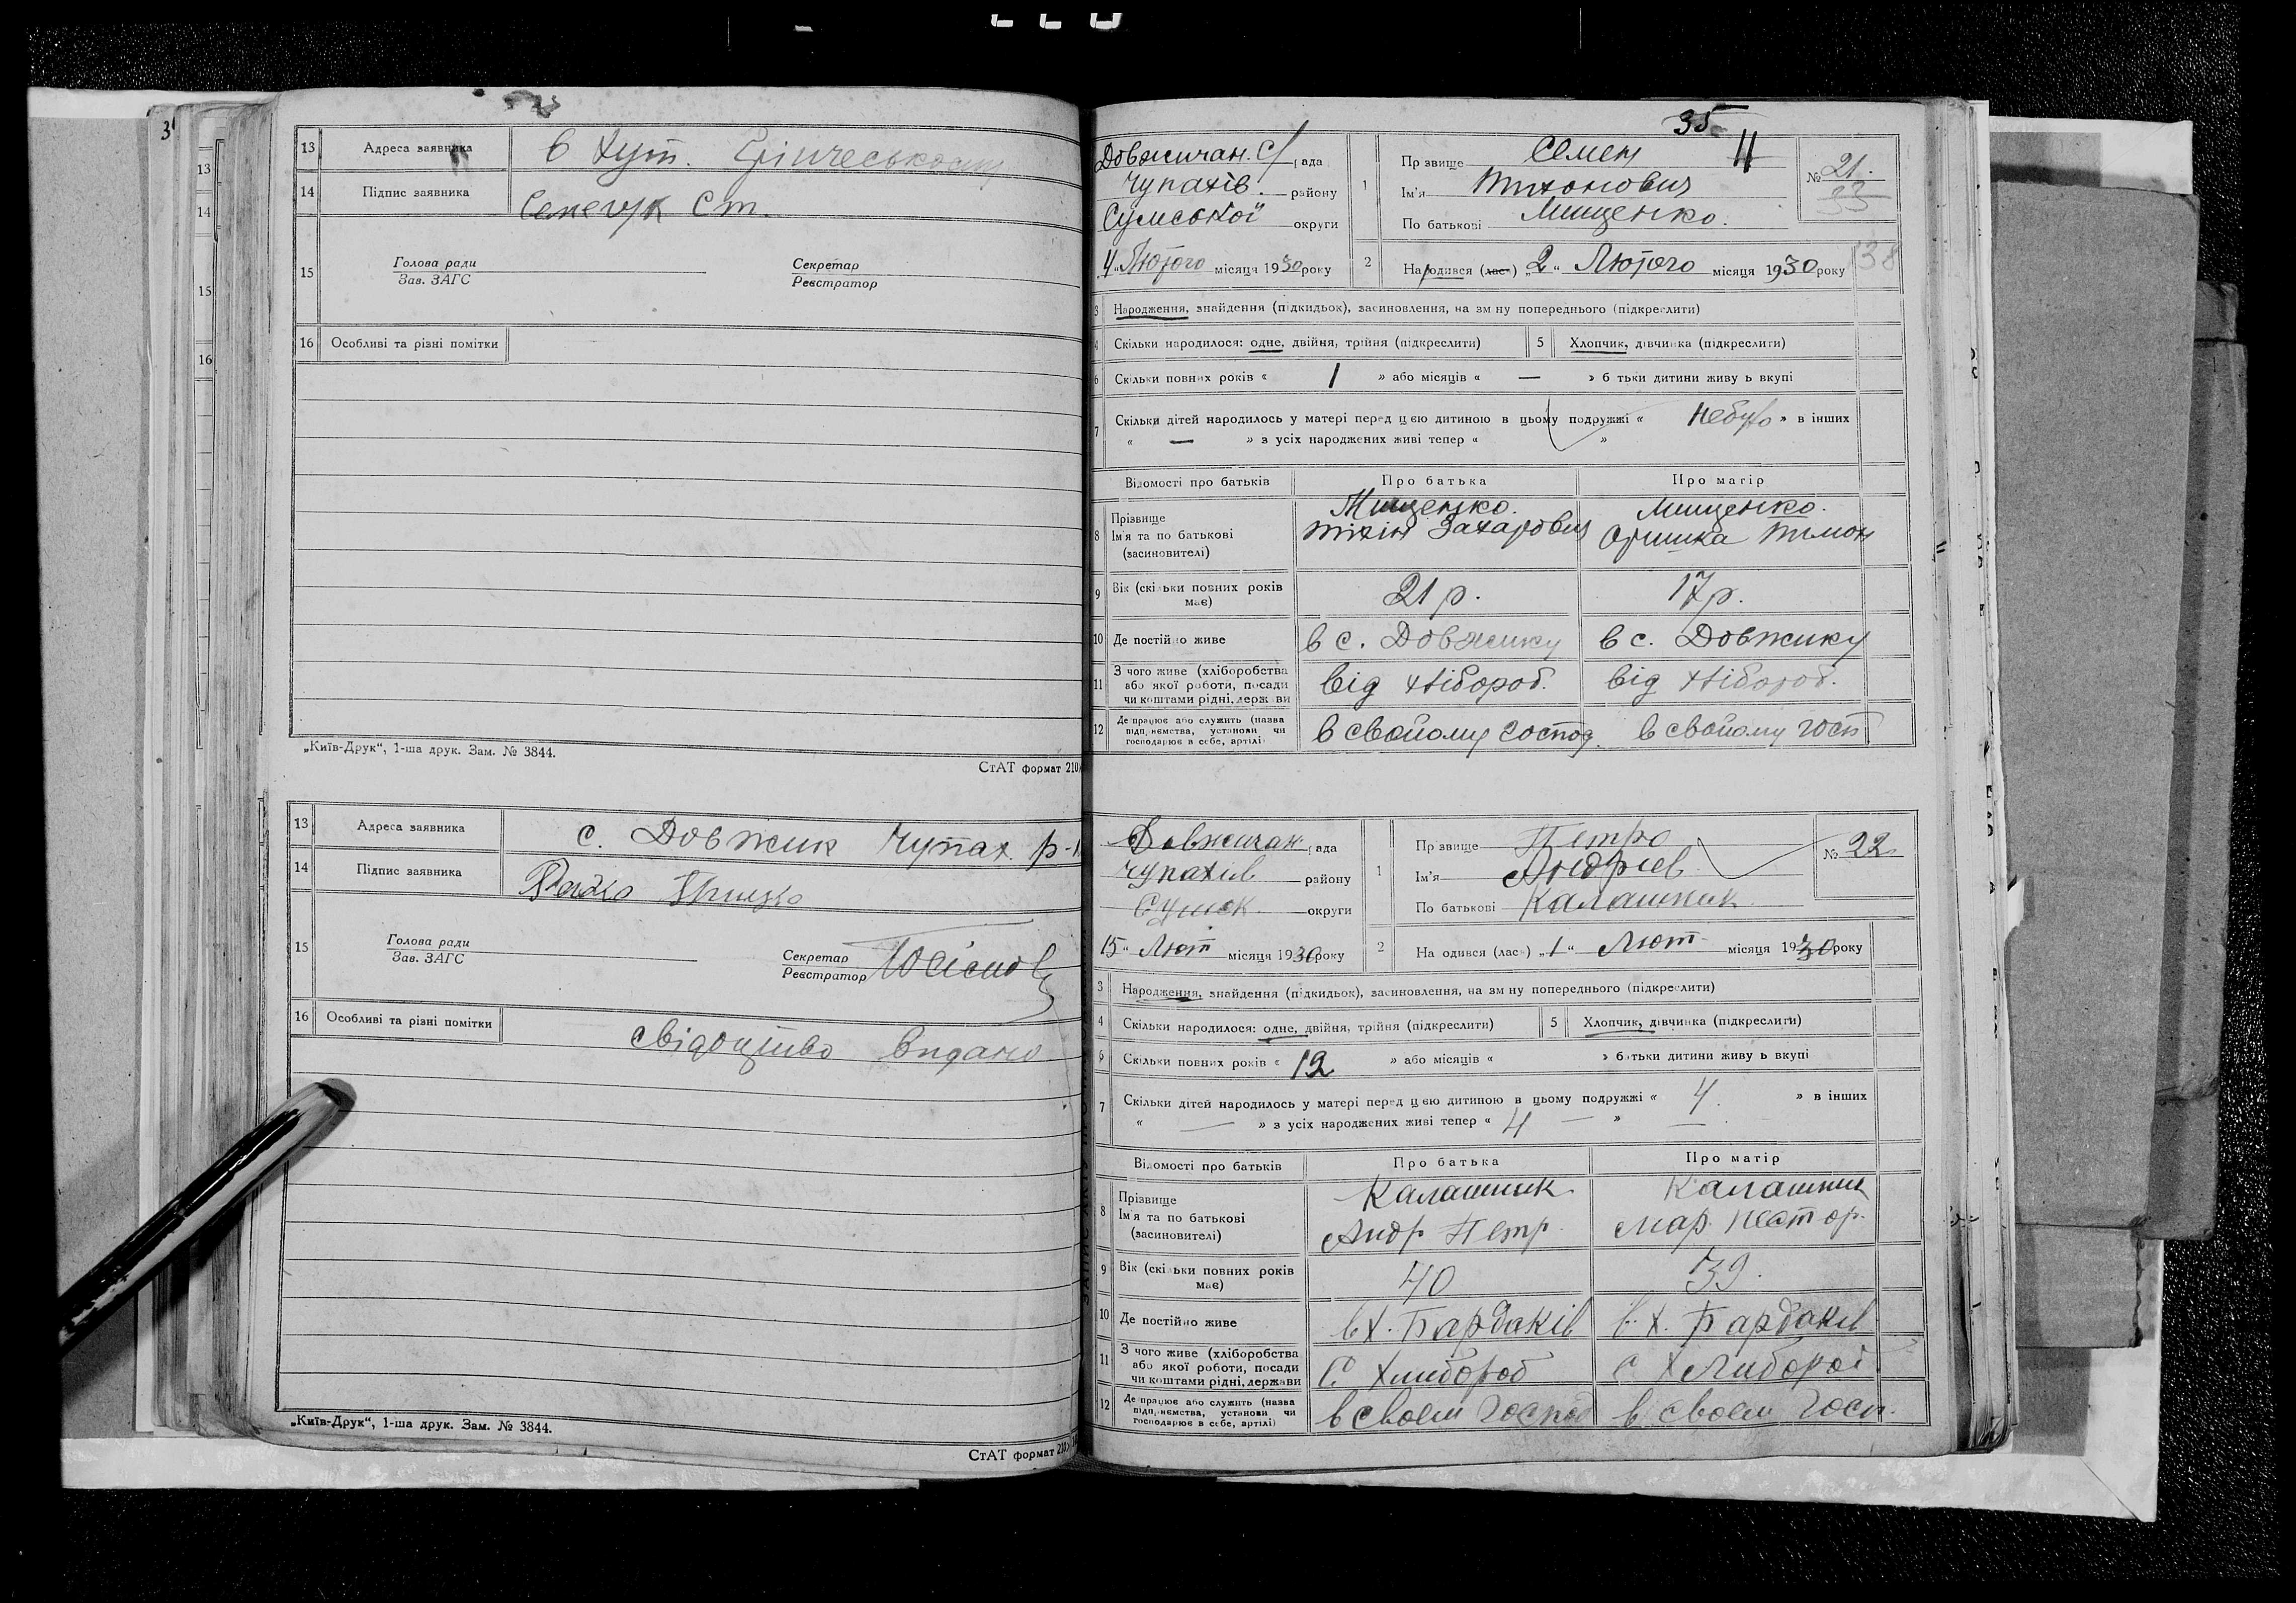 13 Адреса заявника в хут.
14 Підпис заявника Ст.
15 Голова ради Секретар
Зав. ЗАГС Реєстратор
16 Особливі та різні помітки
„Київ-Друк“, 1-ша друк. Зам. № 3844.
СтАТ формат 210
13 Адреса заявника с. Довжик Чупах. р-
14 Підпис заявника
15 Голова ради Секретар
Зав. ЗАГС Реєстратор
16 Особливі та різні помітки свідоцтво видано
„Київ-Друк“, 1-ша друк. Зам. № 3844.
СтАТ формат 210
35
Довжичан. С/ рада
Чупахів. району
Сумської округи
4 „ Лютого місяця 1930 року
1 Прізвище Семен
Ім'я Тихонович
По батькові Мищенко.
№ 21.
33
38
2 Народився (лась) „2“ Лютого місяця 1930 року
3 Народження, знайдення (підкидьок), засиновлення, на зміну попереднього (підкреслити)
4 Скільки народилося: одне, двійня, трійня (підкреслити) 5 Хлопчик, дівчинка (підкреслити)
6 Скільки повних років « 1 » або місяців « — » батьки дитини живуть вкупі
7 Скільки дітей народилось у матері перед цією дитиною в цьому подружжі « небуло » в інших
« — » з усіх народжених живі тепер « »
Відомості про батьків Про батька Про матір
8 Прізвище Мищенко. Мищенко.
Ім'я та по батькові Тихін Захарович Оришка Тимон
(засиновителі)
9 Вік (скільки повних років має) 21 р. 17 р.
10 Де постійно живе в с. Довжику в с. Довжику
11 З чого живе (хліборобства
або якої роботи, посади від хлібороб. від хлібороб.
чи коштами рідні, держави
12 Де працює або служить (назва
підприємства, установи чи в свойому господ. в свойому госп
господарює в себе, артілі)
Довжичан рада
Чупахів району
Сумск. округи
15 „ Лют місяця 1930 року
1 Прізвище Петро
Ім'я Андріев
По батькові Калашник
№ 22
2 Народився (лась) „1“ Лют місяця 1930 року
3 Народження, знайдення (підкидьок), засиновлення, на зміну попереднього (підкреслити)
4 Скільки народилося: одне, двійня, трійня (підкреслити) 5 Хлопчик, дівчинка (підкреслити)
6 Скільки повних років « 12 » або місяців « » батьки дитини живуть вкупі
7 Скільки дітей народилось у матері перед цією дитиною в цьому подружжі « 4. » в інших
« — » з усіх народжених живі тепер « 4 — » —
Відомості про батьків Про батька Про матір
8 Прізвище Калашник Калашник
Ім'я та по батькові Андр Петр. Мар. Нестор.
(засиновителі)
9 Вік (скільки повних років має) 40 39.
10 Де постійно живе в х. Бардаків в. х. Бардаків
11 З чого живе (хліборобства
або якої роботи, посади С хлибороб С хлибороб
чи коштами рідні, держави
12 Де працює або служить (назва
підприємства, установи чи в своем господ в своем госп.
господарює в себе, артілі)